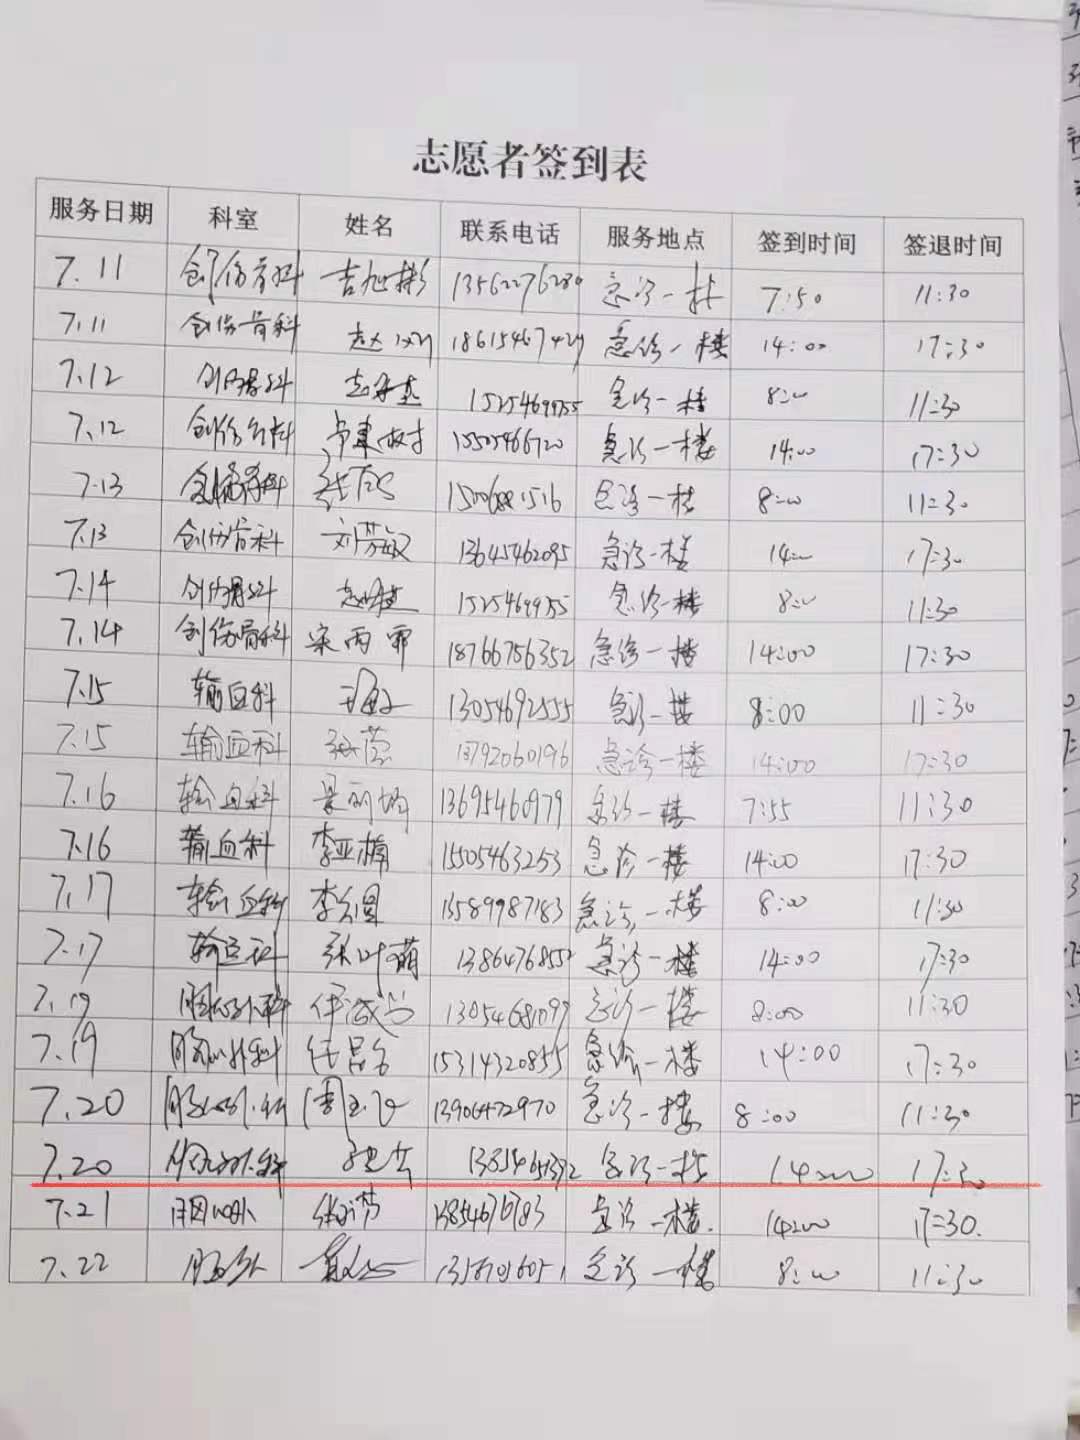 志愿者签到表
服务日期 科室 姓名 联系电话 服务地点 签到时间 签退时间
7.11 创伤骨科 吉旭彬 13562276280 急诊一楼 7:50 11:30
7.11 创伤骨科 赵 18615467429 急诊一楼 14:00 17:30
7.12 创伤骨科 急诊一楼 8:00 11:30
7.12 创伤骨科 15505466720 急诊一楼 14:00 17:30
7.13 创伤骨科 急诊一楼 8:00 11:30
7.13 创伤骨科 刘芬敏 13645462095 急诊一楼 14:00 17:30
7.14 创伤骨科 急诊一楼 8:00 11:30
7.14 创伤骨科 宋雨 18766756352 急诊一楼 14:00 17:30
7.15 输血科 13054692555 急诊一楼 8:00 11:30
7.15 输血科 13792060196 急诊一楼 14:00 17:30
7.16 输血科 13695460979 急诊一楼 7:55 11:30
7.16 输血科 李亚楠 15505463253 急诊一楼 14:00 17:30
7.17 输血科 李 13589987183 急诊一楼 8:00 11:30
7.17 输血科 张叶萌 13864768552 急诊一楼 14:00 17:30
7.19 胸心外科 13054681097 急诊一楼 8:00 11:30
7.19 胸心外科 任昌 15314320855 急诊一楼 14:00 17:30
7.20 胸心外科 周玉飞 13906472970 急诊一楼 8:00 11:30
7.20 胸心外科 急诊一楼 14:00 17:30
7.21 胸心外 13854676783 急诊一楼. 14:00 17:30.
7.22 胸外 急诊一楼 8:00 11:30